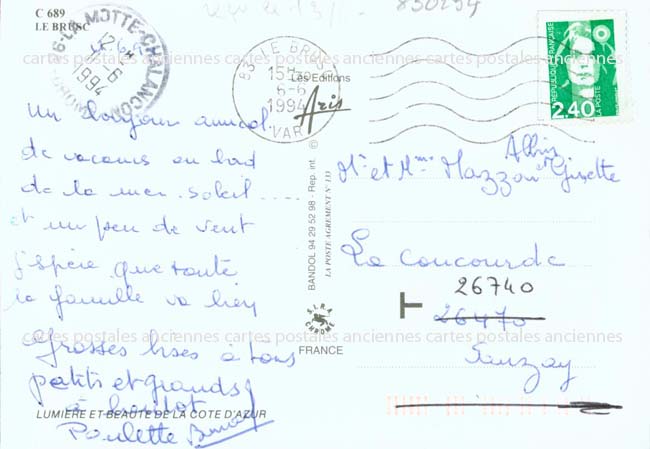 C 689
LE BRUSC
830294
26-LA MOTTE-CHALANCON
12H
6-6
1994
DROME
83-LE BRUSC
15H
6-6
1994
VAR
Les Editions
Aris
REPUBLIQUE FRANÇAISE
LA POSTE
2,40
Un bonjour amical
de vacances au bord
de la mer. soleil ....
et un peu de vent
j'espère que toute
la famille va bien
Grosses bises à tous
petits et grands
à bientôt
Paulette
LUMIERE ET BEAUTE DE LA COTE D'AZUR
BANDOL 94 29 52 98 - Rep. int. ©
LA POSTE AGREMENT N° 133
CHROME
FRANCE
Albin
Mr et Mme Mazzoni et Gisette
La Concourde
26740
26470
Sauzay
cartes postales anciennes cartes postales anciennes cartes postales anciennes